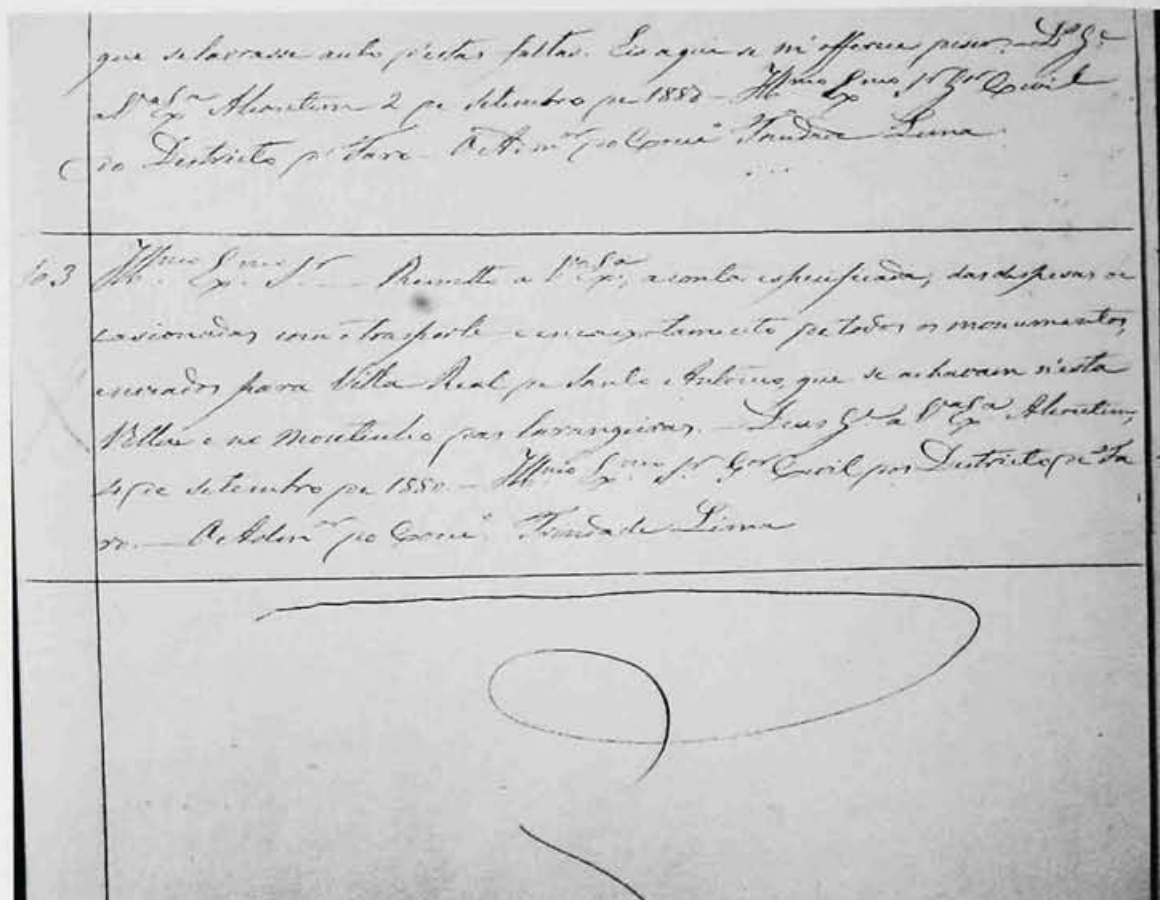 que se lavrasse auto d'estas faltas. Eis o que se m'offerece dizer. D.s G.e
a V.a Ex.a Alcoutim 2 de Setembro de 1880 - Ill.mo Ex.mo Sr. G.or Civil
do Districto de Faro - O Adm.or do Conc.o Trindade Lima
103 Ill.mo Ex.mo Sr. - Remetto a V.a Ex.a, a conta especificada, das despesas oc
casionadas com o trasporte e encaixotamento de todos os monumentos,
enviados para Villa Real de Santo Antonio, que se achavam n'esta
Villa e no Montinho das Laranjeiras. - Deus G.e a V.a Ex.a Alcoutim,
de Setembro de 1880 - Ill.mo Ex.mo Sr. G.or Civil do Districto de Fa
ro. - O Adm.or do Conc.o Trindade Lima